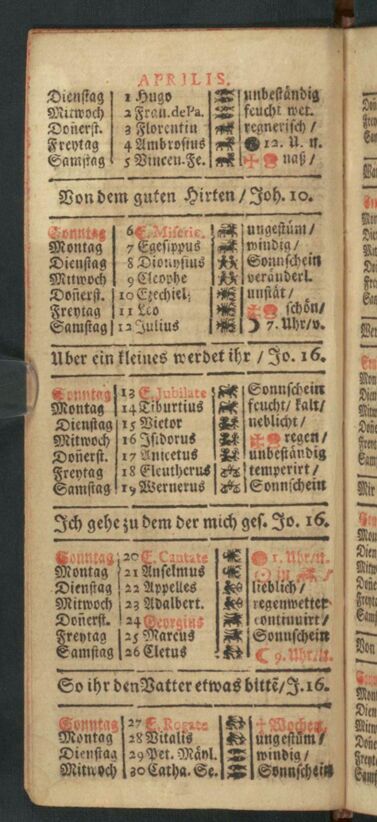 APRILIS.
Dienstag 1 Hugo unbeständig
Mitwoch 2 Frau.de Pa. feucht wet.
Doñerst. 3 Florentin regnerisch /
Freytag 4 Ambrosius 12. U. n.
Samstag 5 Vincen. Fe. naß /
Von dem guten Hirten / Joh. 10.
Sonntag 6 E. Miseric. ungestüm /
Montag 7 Egesippus windig /
Dienstag 8 Dionysius Sonnschein
Mitwoch 9 Cleophe veränderl.
Doñerst. 10 Ezechiel; unstät /
Freytag 11 Leo schön /
Samstag 12 Julius 7. Uhr / v.
Uber ein kleines werdet ihr / Jo. 16.
Sonntag 13 E. Jubilate Sonnschein
Montag 14 Tiburtius feucht / kalt /
Dienstag 15 Vietor neblicht /
Mitwoch 16 Isidorus regen /
Doñerst. 17 Anicetus unbeständig
Freytag 18 Eleutherus temperirt /
Samstag 19 Wernerus Sonnschein
Ich gehe zu dem der mich ges. Jo. 16.
Sonntag 20 E. Cantate 1. Uhr / n.
Montag 21 Anselmus in
Dienstag 22 Appelles lieblich /
Mitwoch 23 Adalbert. regenwetter
Doñerst. 24 Georgius continuirt /
Freytag 25 Marcus Sonnschein
Samstag 26 Cletus 9. Uhr / n.
So ihr den Vatter etwas bittẽ / J. 16.
Sonntag 27 E. Rogate † Wochen.
Montag 28 Vitalis ungestüm /
Dienstag 29 Pet. Mäyl. windig /
Mitwoch 30 Catha. Se. Sonnschein